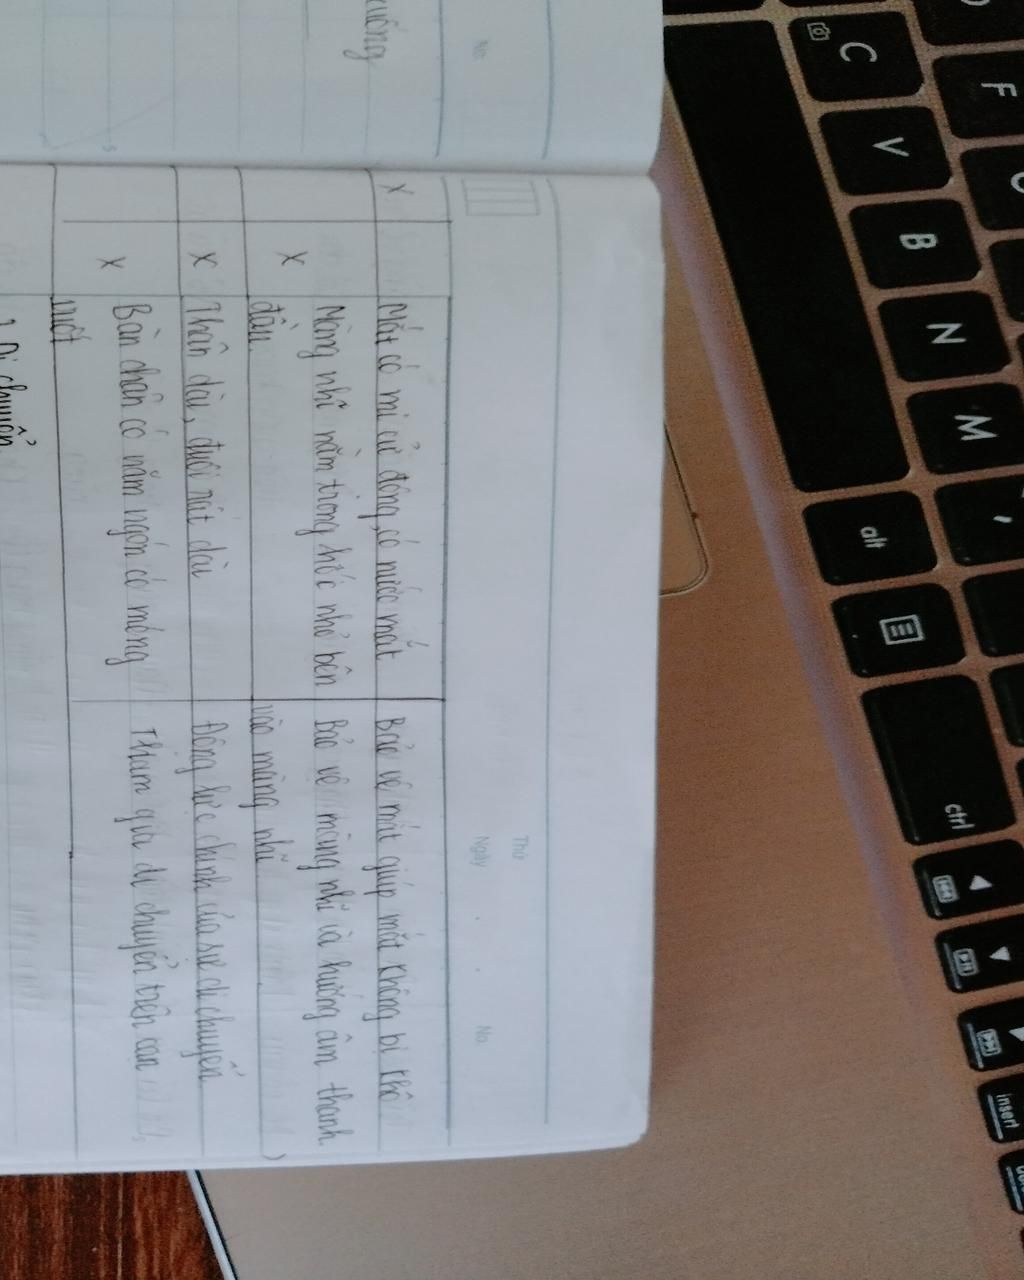 uống
No.
Thứ
Ngày
No.
x
Mắt có mi cử động, có nước mắt
Bảo vệ mắt giúp mắt không bị khô
x
Màng nhĩ nằm trong hốc nhỏ bên
đầu
Bảo vệ màng nhĩ và hướng âm thanh
vào màng nhĩ
x
Thân dài, đuôi rất dài
Động lực chính của sự di chuyển
x
Bàn chân có năm ngón có móng
vuốt
Tham gia di chuyển trên cạn
1. Di chuyển
C
F
V
B
N
M
alt
ctrl
insert